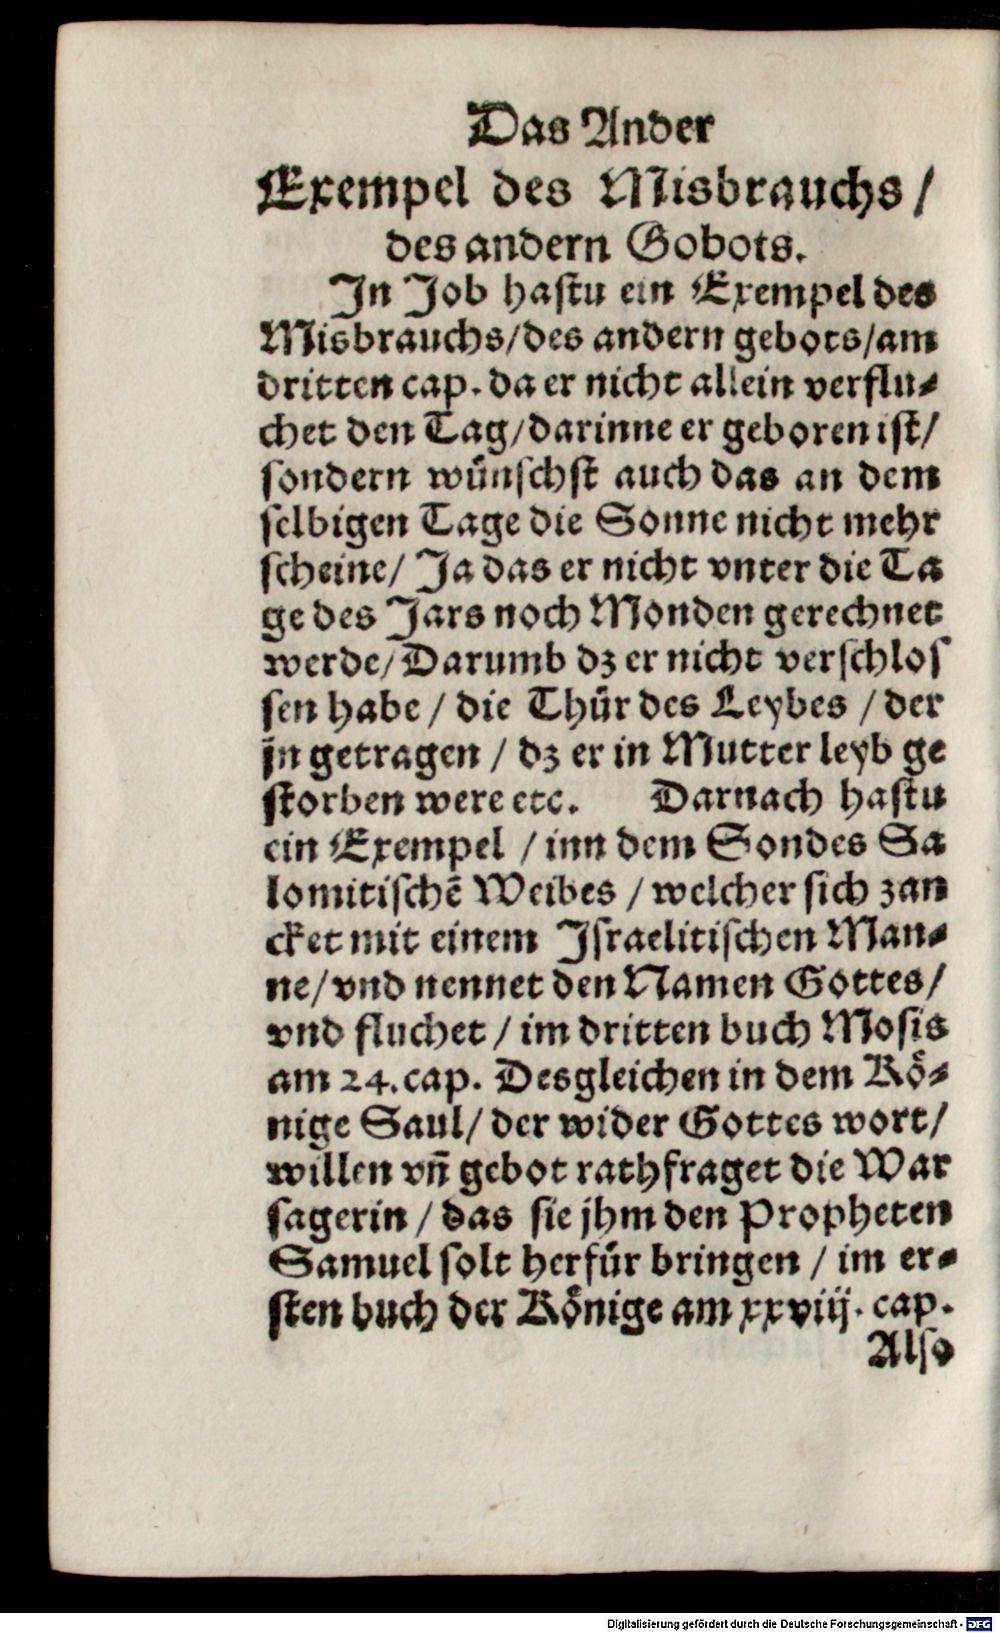 Das Ander
Exempel des Misbrauchs /
des andern Gobots.
Jn Job hastu ein Exempel des
Misbrauchs/des andern gebots/am
dritten cap. da er nicht allein verflu⸗
chet den Tag/darinne er geboren ist/
sondern wünschst auch das an dem
selbigen Tage die Sonne nicht mehr
scheine/ Ja das er nicht vnter die Ta
ge des Jars noch Monden gerechnet
werde/Darumb dz er nicht verschlos
sen habe / die Thür des Leybes / der
jn getragen / dz er in Mutter leyb ge
storben were etc. Darnach hastu
ein Exempel / inn dem Sondes Sa
lomitischē Weibes / welcher sich zan
cket mit einem Jsraelitischen Man⸗
ne/vnd nennet den Namen Gottes/
vnd fluchet / im dritten buch Mosis
am 24. cap. Desgleichen in dem Kö⸗
nige Saul/ der wider Gottes wort/
willen vn̄ gebot rathfraget die War
sagerin / das sie jhm den Propheten
Samuel solt herfür bringen / im er⸗
sten buch der Könige am xxviij. cap.
Also
Digitalisierung gefördert durch die Deutsche Forschungsgemeinschaft - DFG